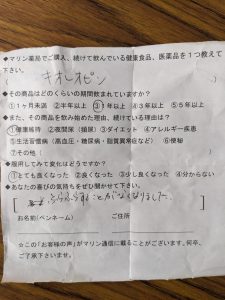 ◆マリン薬局でご購入、続けて飲んでいる健康食品、医薬品を１つ教えて
下さい。
( キオレオピン
◆その商品はどのくらいの期間飲まれていますか？
①１ヶ月未満 ②半年以上 ③１年以上 ④３年以上 ⑤５年以上
◆また、その商品を飲み始めた理由、続けている理由は？
①健康維持 ②夜間尿（頻尿）③ダイエット ④アレルギー疾患
⑤生活習慣病（高血圧・糖尿病・脂質異常症など） ⑥便秘
⑦その他（
◆服用してみて変化はどうですか？
①とても良くなった ②良くなった ③少し良くなった ④分からない
◆あなたの喜びの気持ちをぜひ聞かせて下さい。
[ ふらふらすることがなくなりました。 ]
お名前(ペンネーム) ご住所
☆この「お客様の声」がマリン通信に載ることがございます。何卒、
ご了承下さいませ。